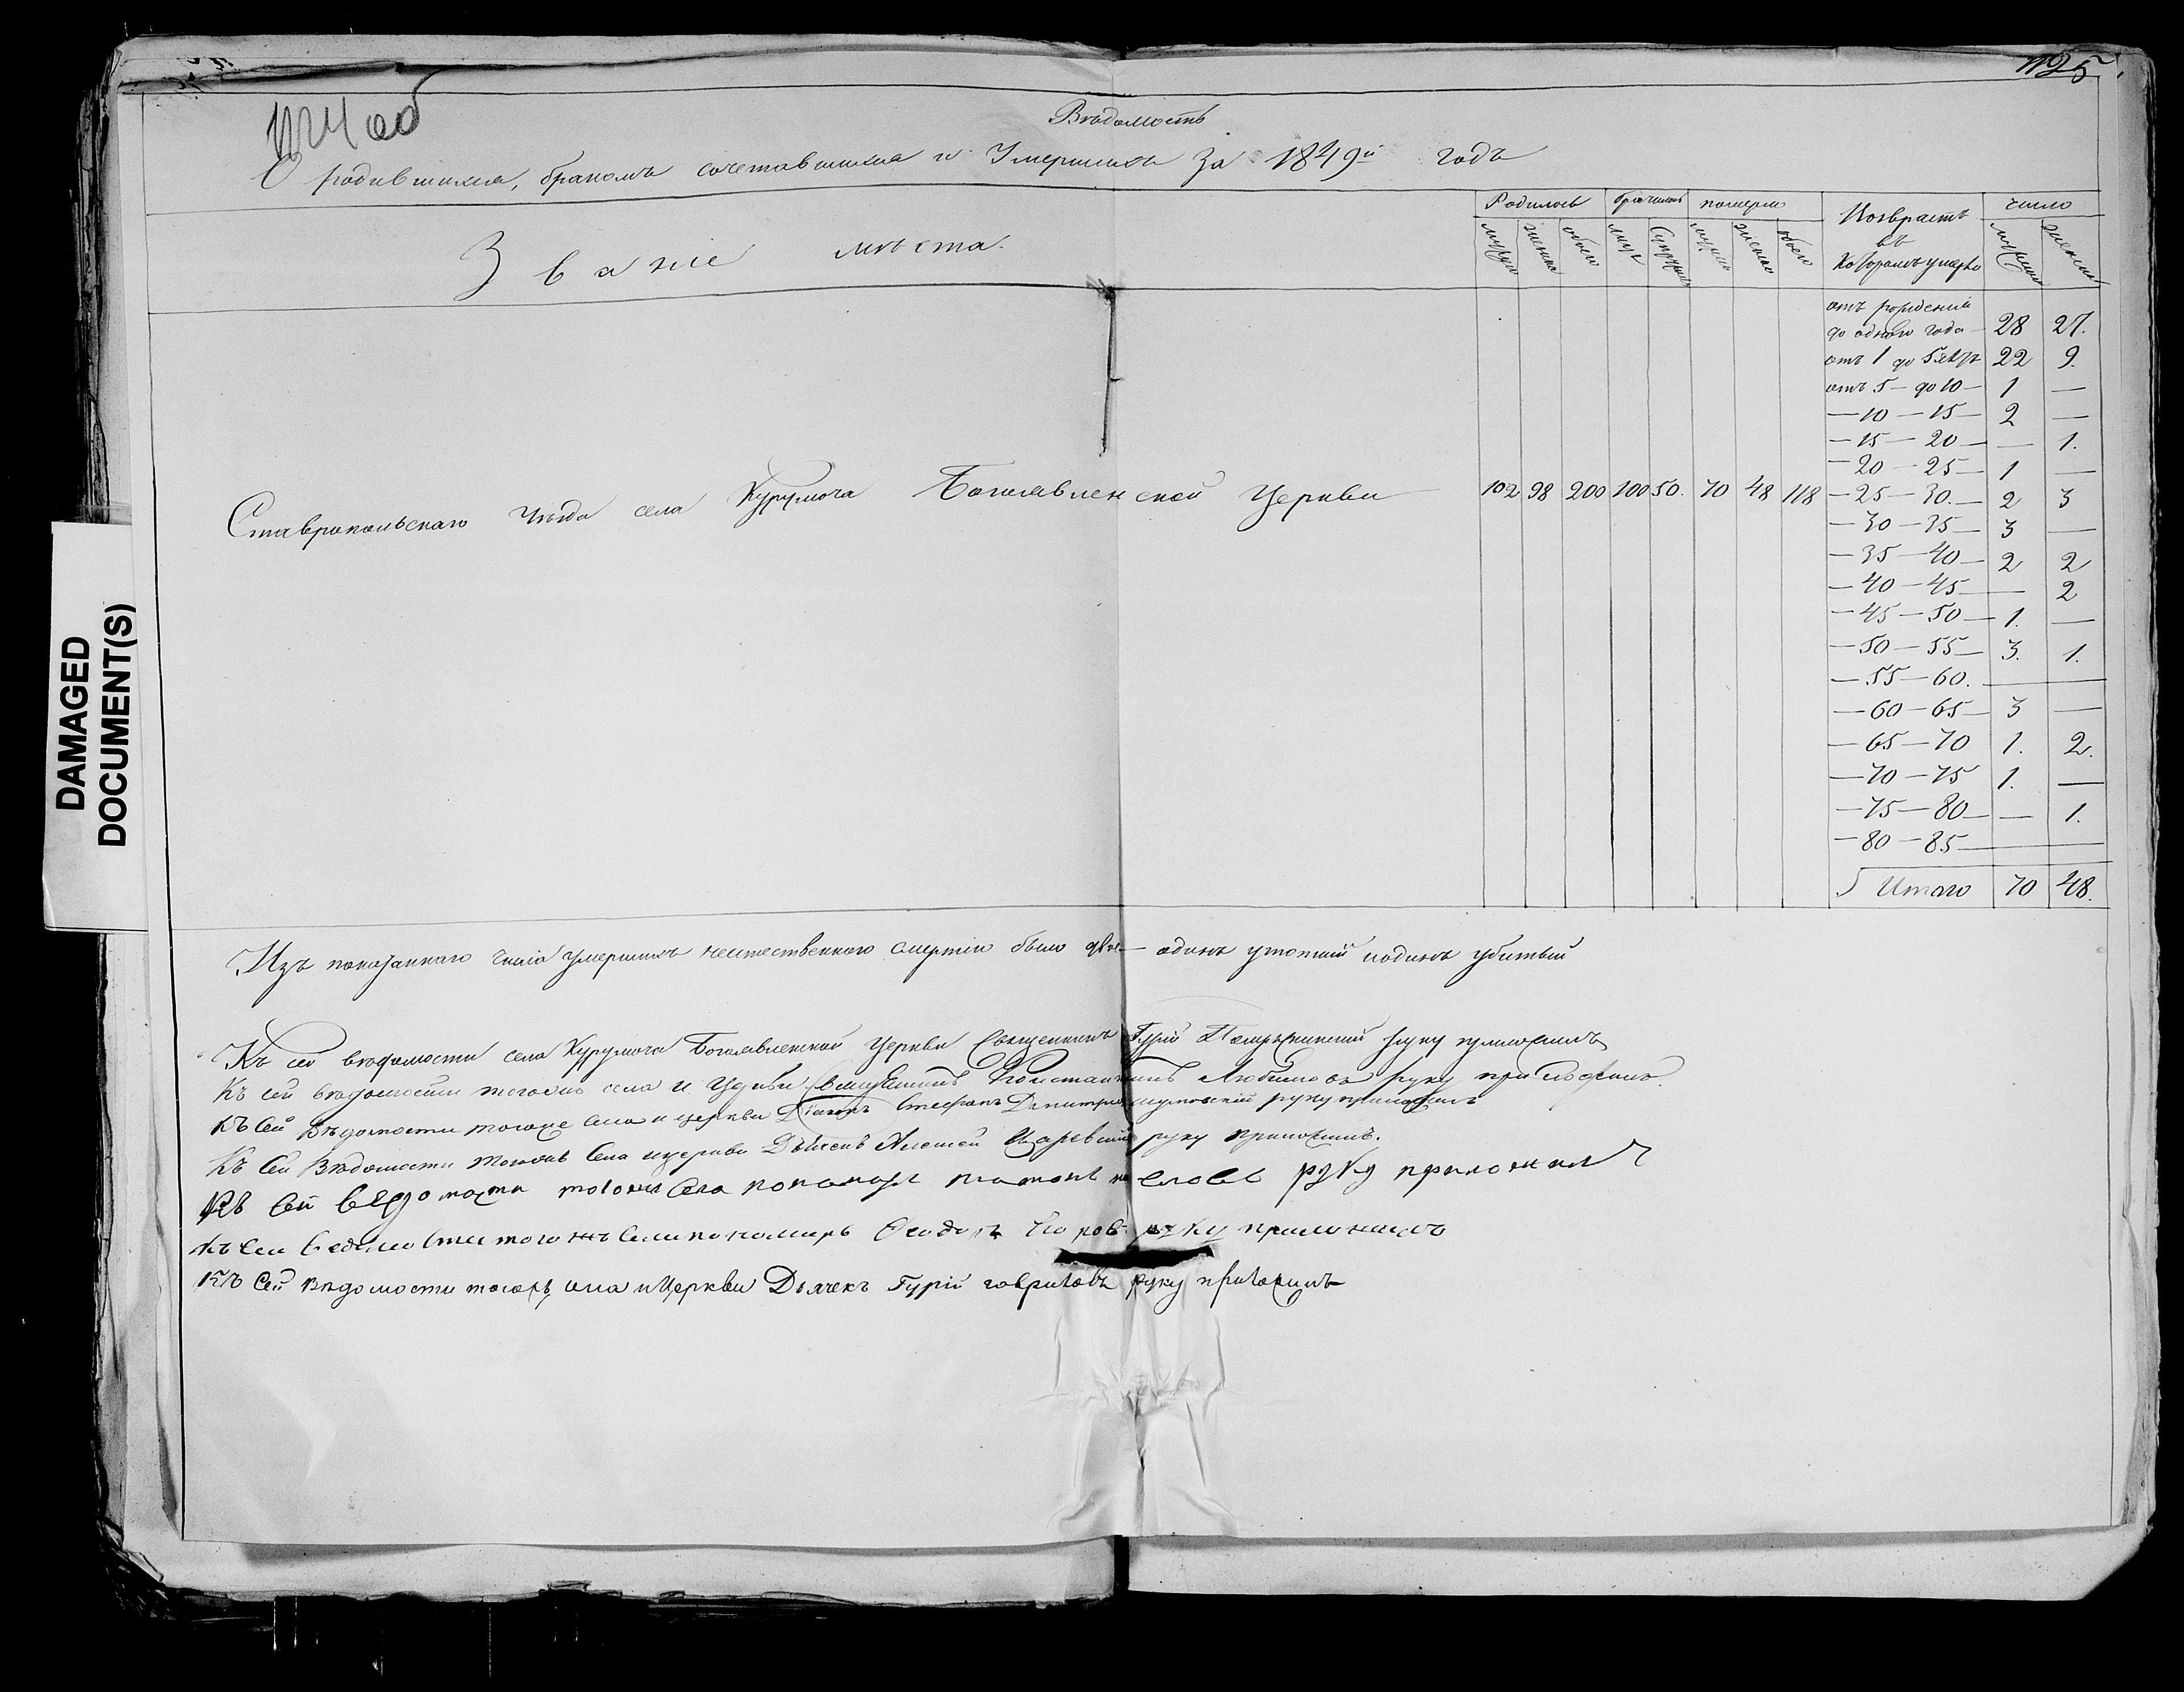 1125
1124 об
Вѣдомость
О родившихся, бракомъ сочетавшихся и Умершихъ За 1849й годъ
Званіе мѣста.
Родилось
брачились
померло
Возврастъ въ Которомъ умерли
число
мужска
женска
обоего
лицъ
Супружествъ
мужска
женска
обоего
мужска
женска
отъ рожденія
до одного года 28 27.
отъ 1 до 5 лѣтъ 22 9.
отъ 5 — до 10 — 1 —
— 10 — 15 — 2 —
— 15 — 20 — — 1.
— 20 — 25 — 1 —
Ставропольскаго Уѣзда села Курумоча Богоявленской Церкви 102 98 200 100 50. 70 48 118 — 25 — 30. — 2 3
— 30 — 35 — 3 —
— 35 — 40 — 2 2
— 40 — 45 — — 2
— 45 — 50 — 1. —
— 50 — 55 — 3. 1.
— 55 — 60. —
— 60 — 65 — 3 —
— 65 — 70 1. 2.
— 70 — 75 1. —
— 75 — 80 — — 1.
— 80 — 85 —
Итого 70 48.
Изъ показаннаго числа умершихъ неестественною смертію было двое — одинъ утопшій и одинъ убитый
Къ сей вѣдомости села Курумоча Богоявленской Церкви Священникъ Гурій руку приложилъ
Къ сей вѣдомости тогожъ села и Церкви Священникъ Константинъ Любимовъ руку приложилъ.
Къ сей Вѣдомости тогоже села и церкви Діаконъ Стефанъ руку приложилъ
Къ Сей Вѣдомости тогожъ Села и церкви Дьячекъ Алексей Царевский руку приложилъ.
Къ Сей ведомости тогожъ Села пономарь Платонъ руку приложилъ
Къ Сей Ведомости тогожъ Села пономарь Феодоръ руку приложилъ
Къ Сей вѣдомости тогожъ села и Церкви Дьячекъ Гурій Гавриловъ руку приложилъ
DAMAGED
DOCUMENT(S)